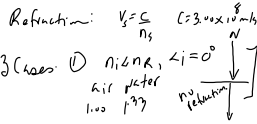 Refraction: Vs = c/ns C = 3.00x10^8 m/s
N
3 Cases: ① ni < nR, ∠i = 0°
air water
1.00 1.33
no refraction